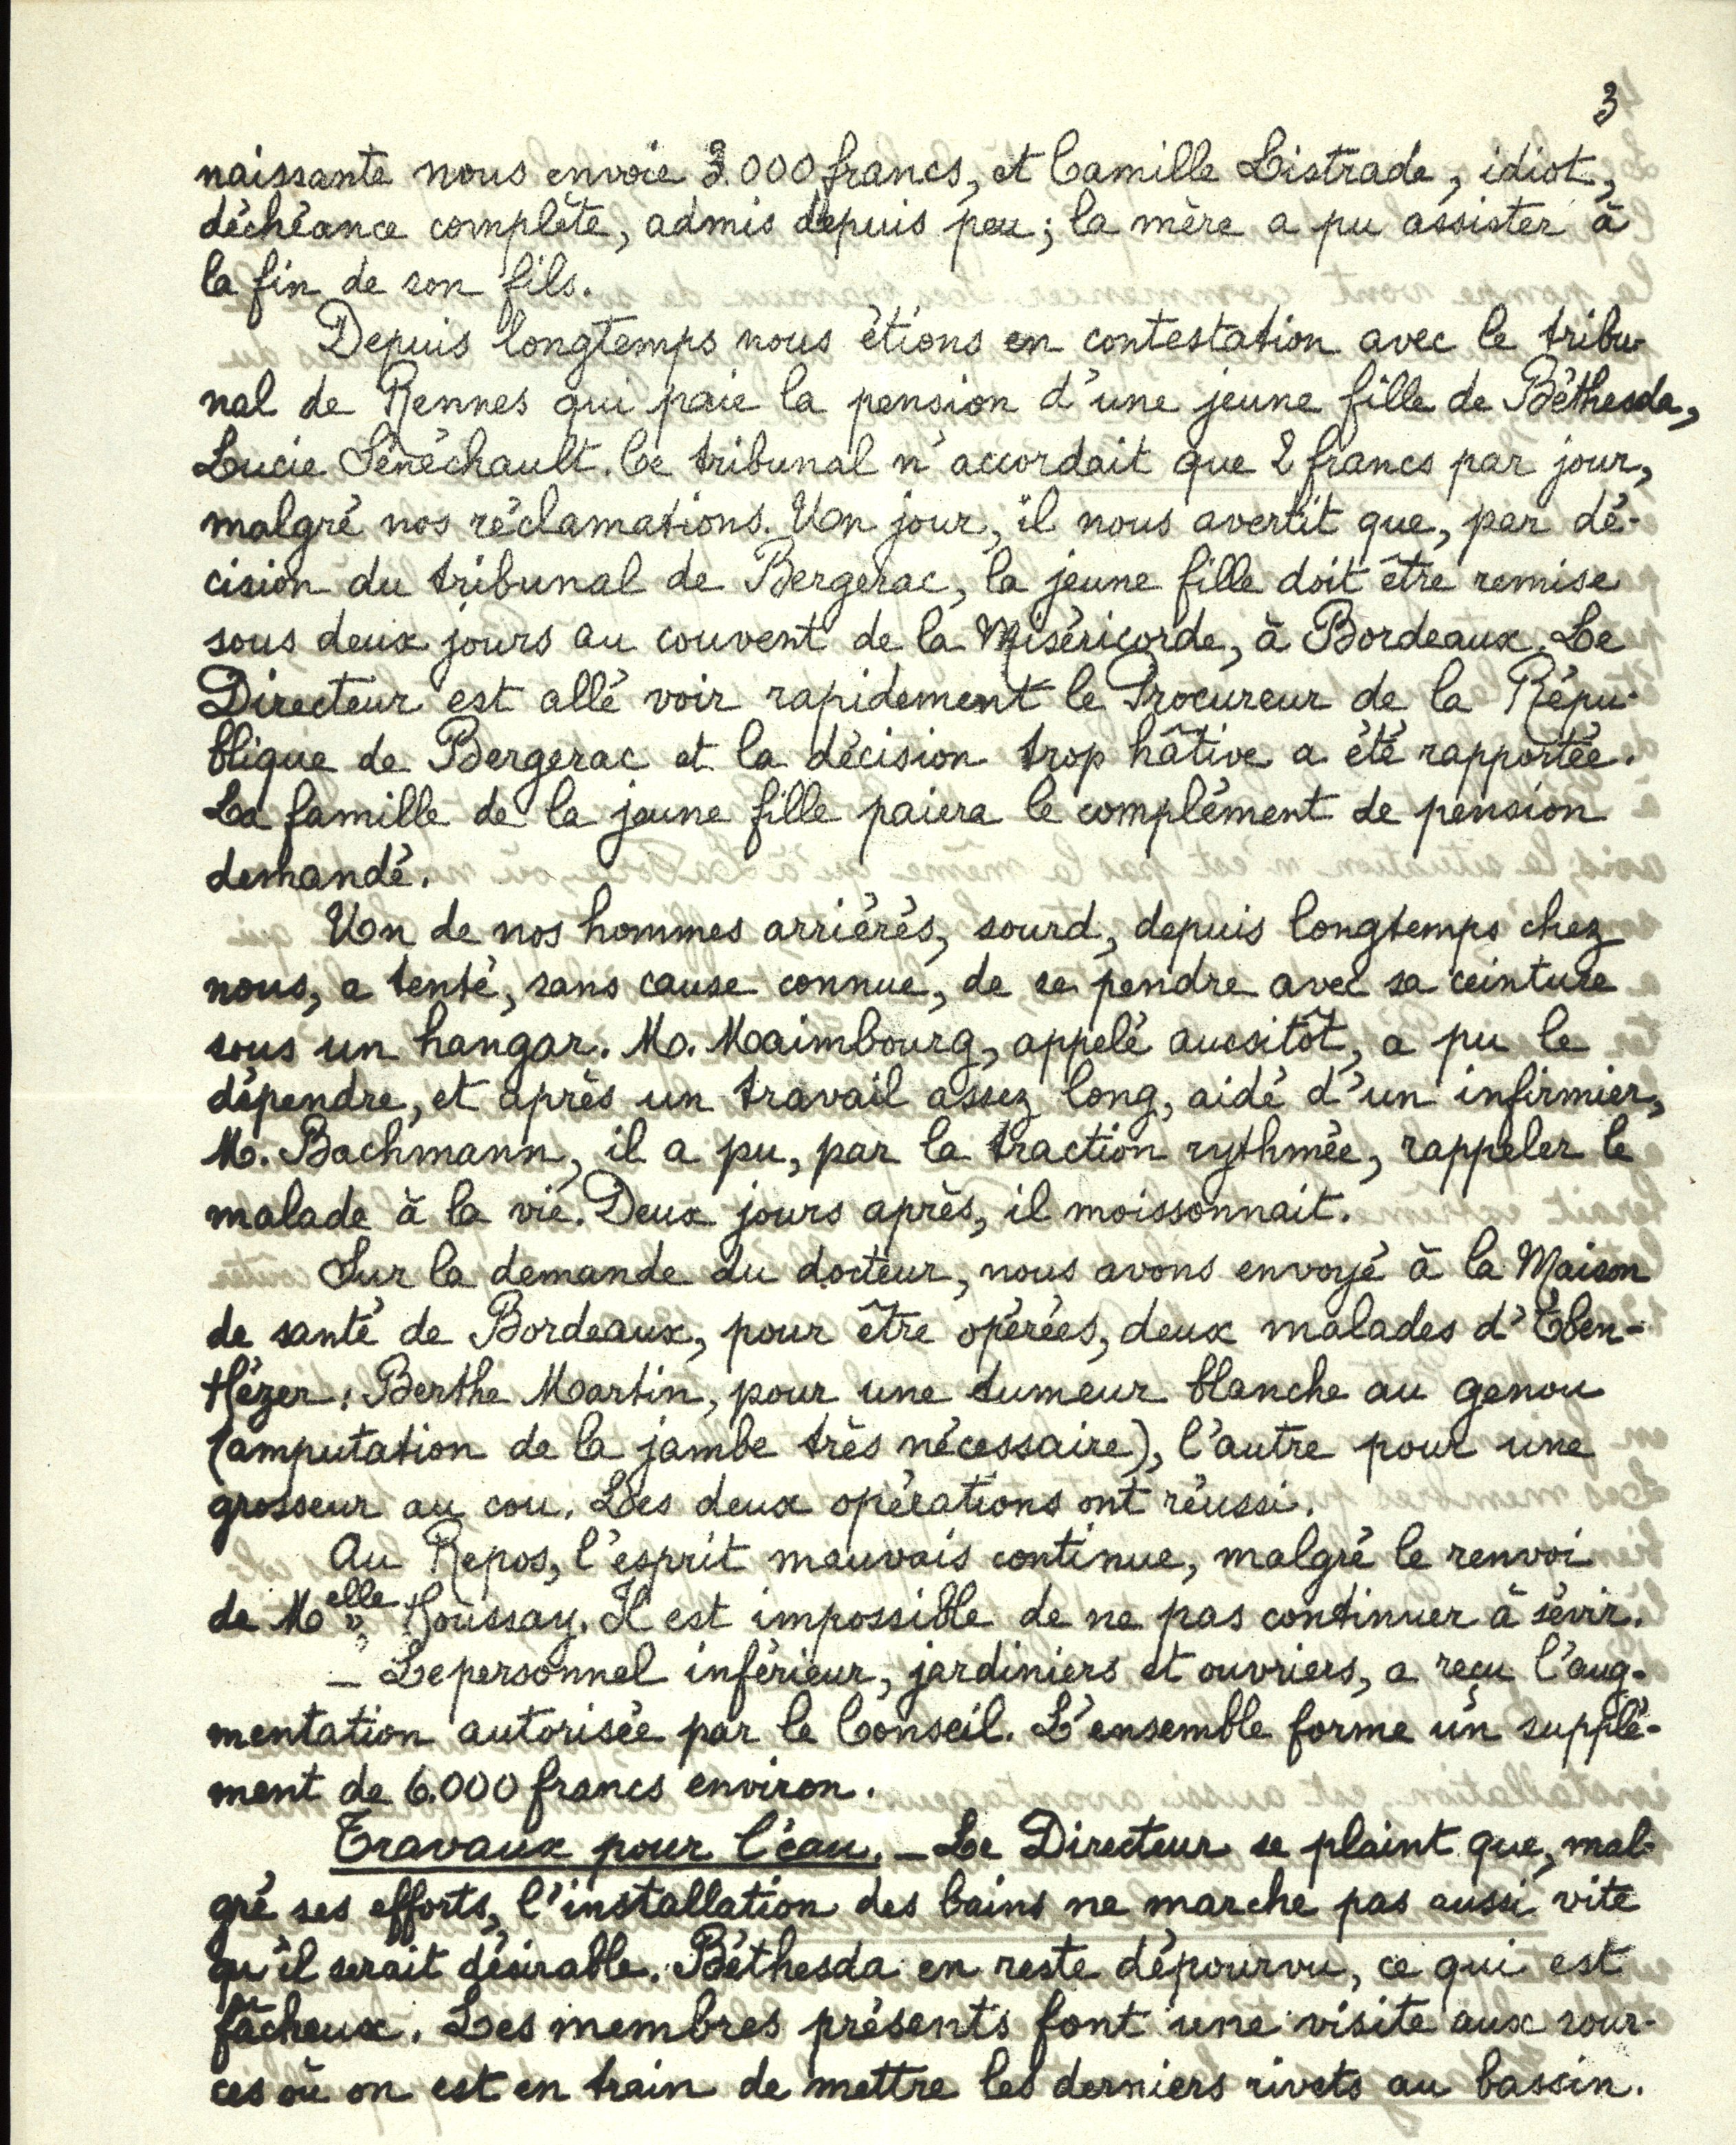 3
naissante nous envoie 3.000 francs, et Camille Listrade, idiot,
déchéance complète, admis depuis peu; la mère a pu assister à
la fin de son fils.
Depuis longtemps nous étions en contestation avec le tribu-
nal de Rennes qui paie la pension d'une jeune fille de Béthesda,
Lucie Sénéchault. Ce tribunal n'accordait que 2 francs par jour,
malgré nos réclamations. Un jour, il nous avertit que, par dé-
cision du tribunal de Bergerac, la jeune fille doit être remise
sous deux jours au couvent de la Miséricorde, à Bordeaux. Le
Directeur est allé voir rapidement le Procureur de la Répu-
blique de Bergerac et la décision trop hâtive a été rapportée.
La famille de la jeune fille paiera le complément de pension
demandé.
Un de nos hommes arriérés, sourd, depuis longtemps chez
nous, a tenté, sans cause connue, de se pendre avec sa ceinture
sous un hangar. M. Maimbourg, appelé aussitôt, a pu le
dépendre, et après un travail assez long, aidé d'un infirmier,
M. Bachmann, il a pu, par la traction rythmée, rappeler le
malade à la vie. Deux jours après, il moissonnait.
Sur la demande du docteur, nous avons envoyé à la Maison
de santé de Bordeaux, pour être opérées, deux malades d'Eben-
Hézer: Berthe Martin, pour une tumeur blanche au genou
(amputation de la jambe très nécessaire), l'autre pour une
grosseur au cou. Les deux opérations ont réussi.
Au Repos, l'esprit mauvais continue, malgré le renvoi
de Melle Houssay. Il est impossible de ne pas continuer à sévir.
_ Le personnel inférieur, jardiniers et ouvriers, a reçu l'aug-
mentation autorisée par le Conseil. L'ensemble forme un supplé-
ment de 6.000 francs environ.
Travaux pour l'eau. _ Le Directeur se plaint que, mal-
gré ses efforts, l'installation des bains ne marche pas aussi vite
qu'il serait désirable. Béthesda en reste dépourvu, ce qui est
fâcheux. Les membres présents font une visite aux sour-
ces où on est en train de mettre les derniers rivets au bassin.